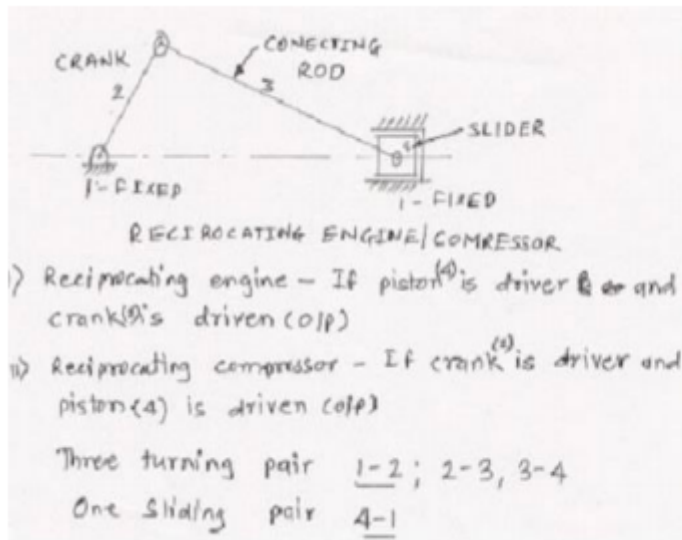 CRANK
CONECTING
ROD
2
3
SLIDER
1-FIXED
1-FIXED
RECIROCATING ENGINE/COMRESSOR
i) Reciprocating engine - If piston(4) is driver and
crank(2) is driven (o/p)
ii) Reciprocating compressor - If crank(2) is driver and
piston(4) is driven (o/p)
Three turning pair 1-2; 2-3, 3-4
One Sliding pair 4-1